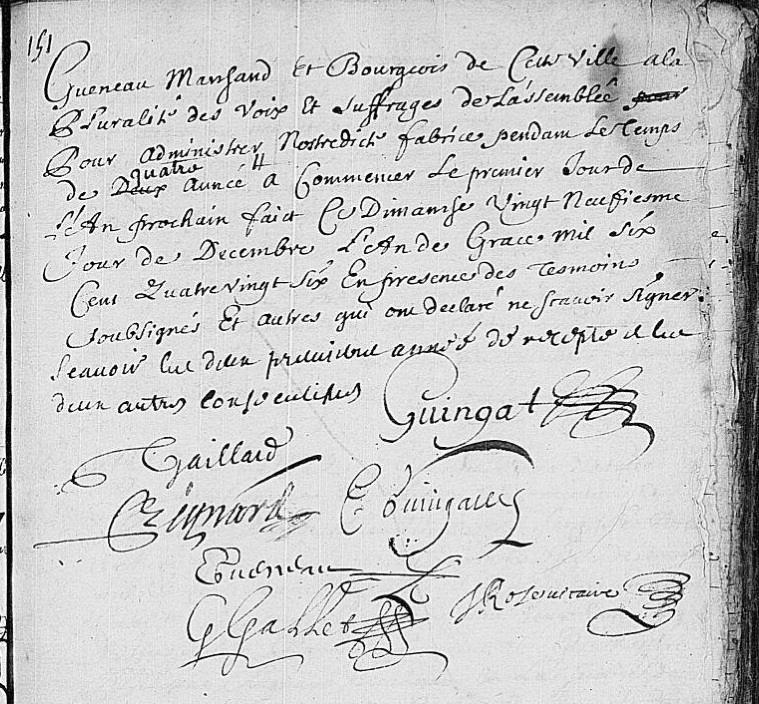 151
Gueneau Marchand Et Bourgeois de Cette Ville a la
Pluralité des Voix Et Suffrages de L'assemblée pour
Pour Administrer Nostredicte fabrice pendant Le Temps
quatre
de Deux année A Commencer Le premier Jour de
L'An prochain faict Ce Dimanche Vingt Neufiesme
Jour de Decembre L'An de Grace mil Six
Cent Quatrevingt Six En presence des Tesmoins
Soubsignés Et autres qui ont declaré ne scavoir signer.
Scavoir les deux premieres année de recepte et les
deux autres consecutives
Guingat
Gaillard
Reynard
Gueneau
G Gallet